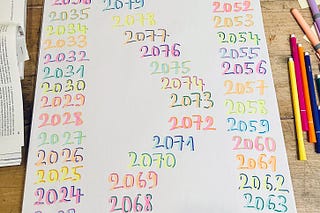 2035
2034
2033
2032
2031
2030
2029
2028
2027
2026
2025
2024
2079
2078
2077
2076
2075
2074
2073
2072
2071
2070
2069
2068
2052
2053
2054
2055
2056
2057
2058
2059
2060
2061
2062
2063